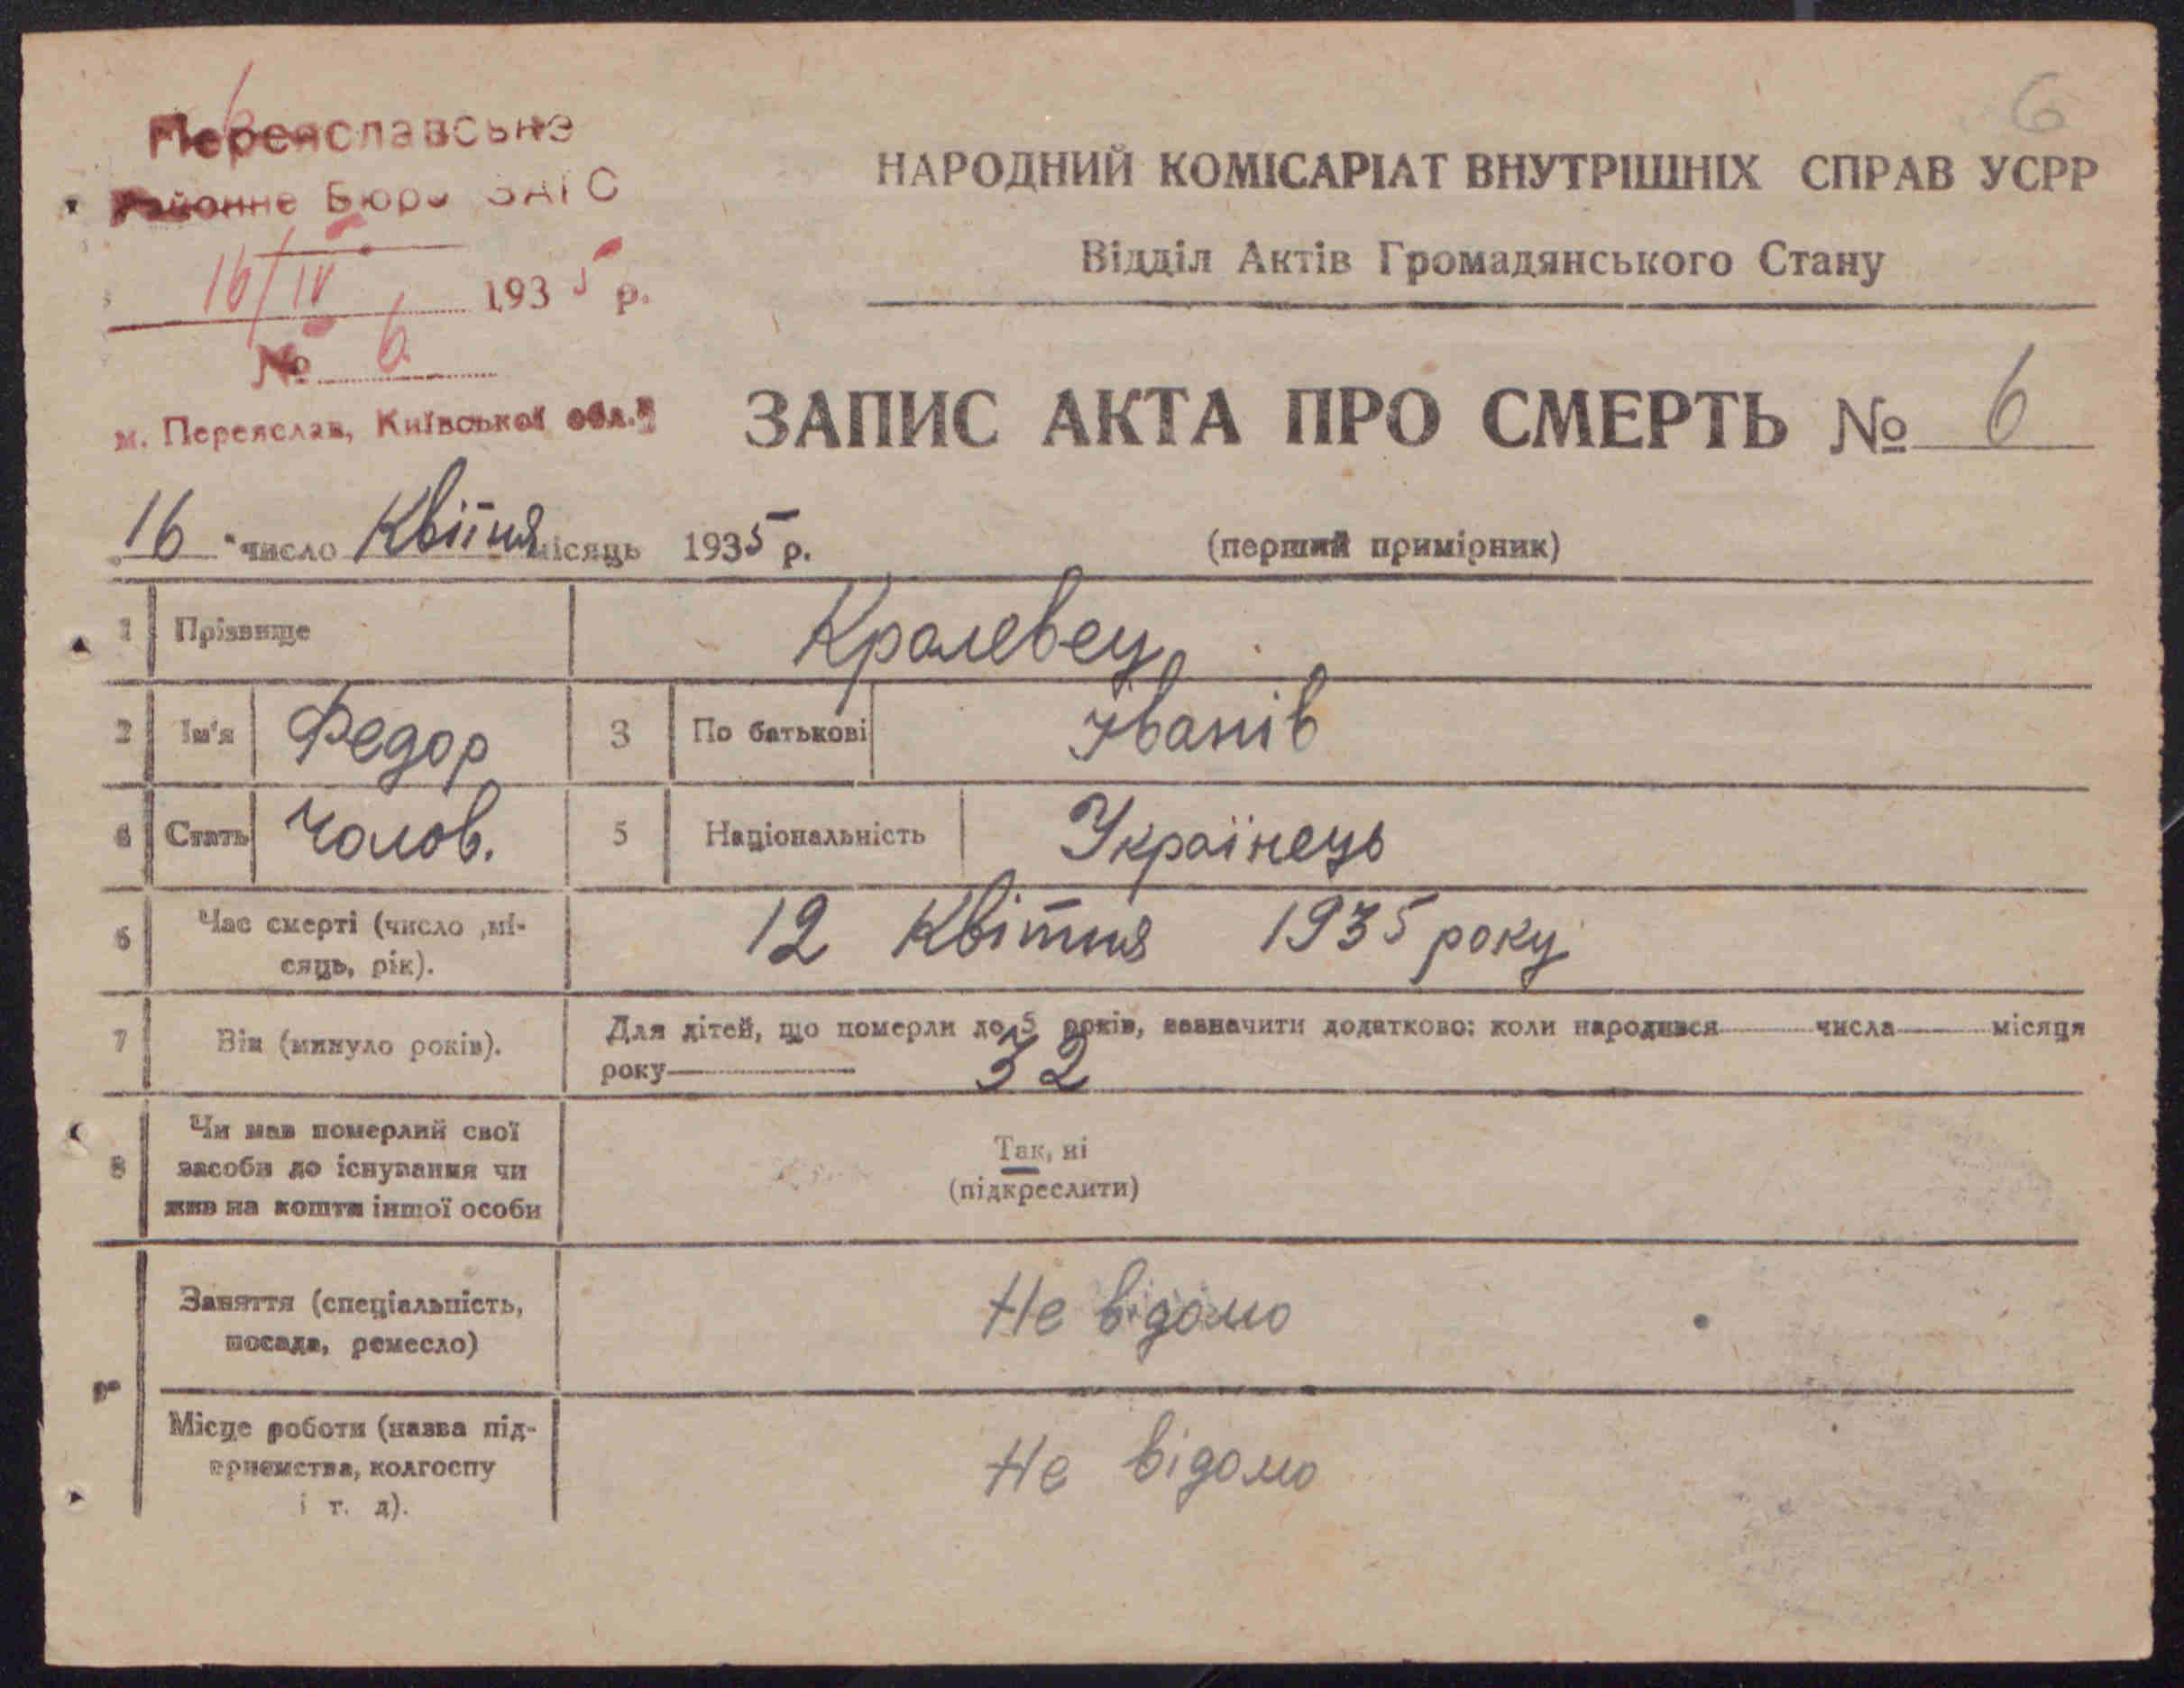 6
Переяславське
Районне Бюро ЗАГС
16/IV 1935 р.
№ 6
м. Переяслав, Київської обл.
6
НАРОДНИЙ КОМІСАРІАТ ВНУТРІШНІХ СПРАВ УСРР
Відділ Актів Громадянського Стану
ЗАПИС АКТА ПРО СМЕРТЬ № 6
16 число Квітня місяць 1935 р.
(перший примірник)
1 Прізвище Кролевец
2 Ім'я Федор 3 По батькові Іванів
4 Стать Чолов. 5 Національність Українець
6 Час смерті (число ,мі-
сяць, рік).
12 Квітня 1935 року
7 Вік (минуло років).
Для дітей, що померли до 5 років, зазначити додатково: коли народився числа місяця
року 32
8 Чи мав померлий свої
засоби до існування чи
жив на кошти іншої особи
Так, ні
(підкреслити)
Заняття (спеціальність,
посада, ремесло)
Не відомо
Місце роботи (назва під-
приємства, колгоспу
і т. д).
Не відомо